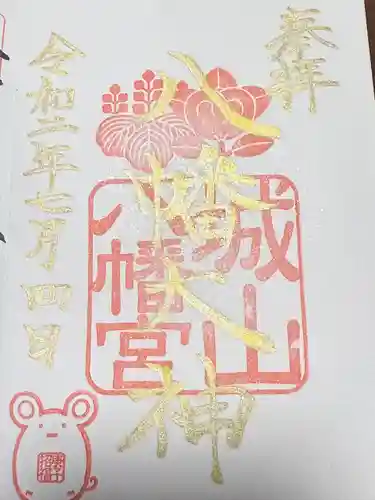 奉拝
八幡大神
城山
八幡宮
令和二年七月四日